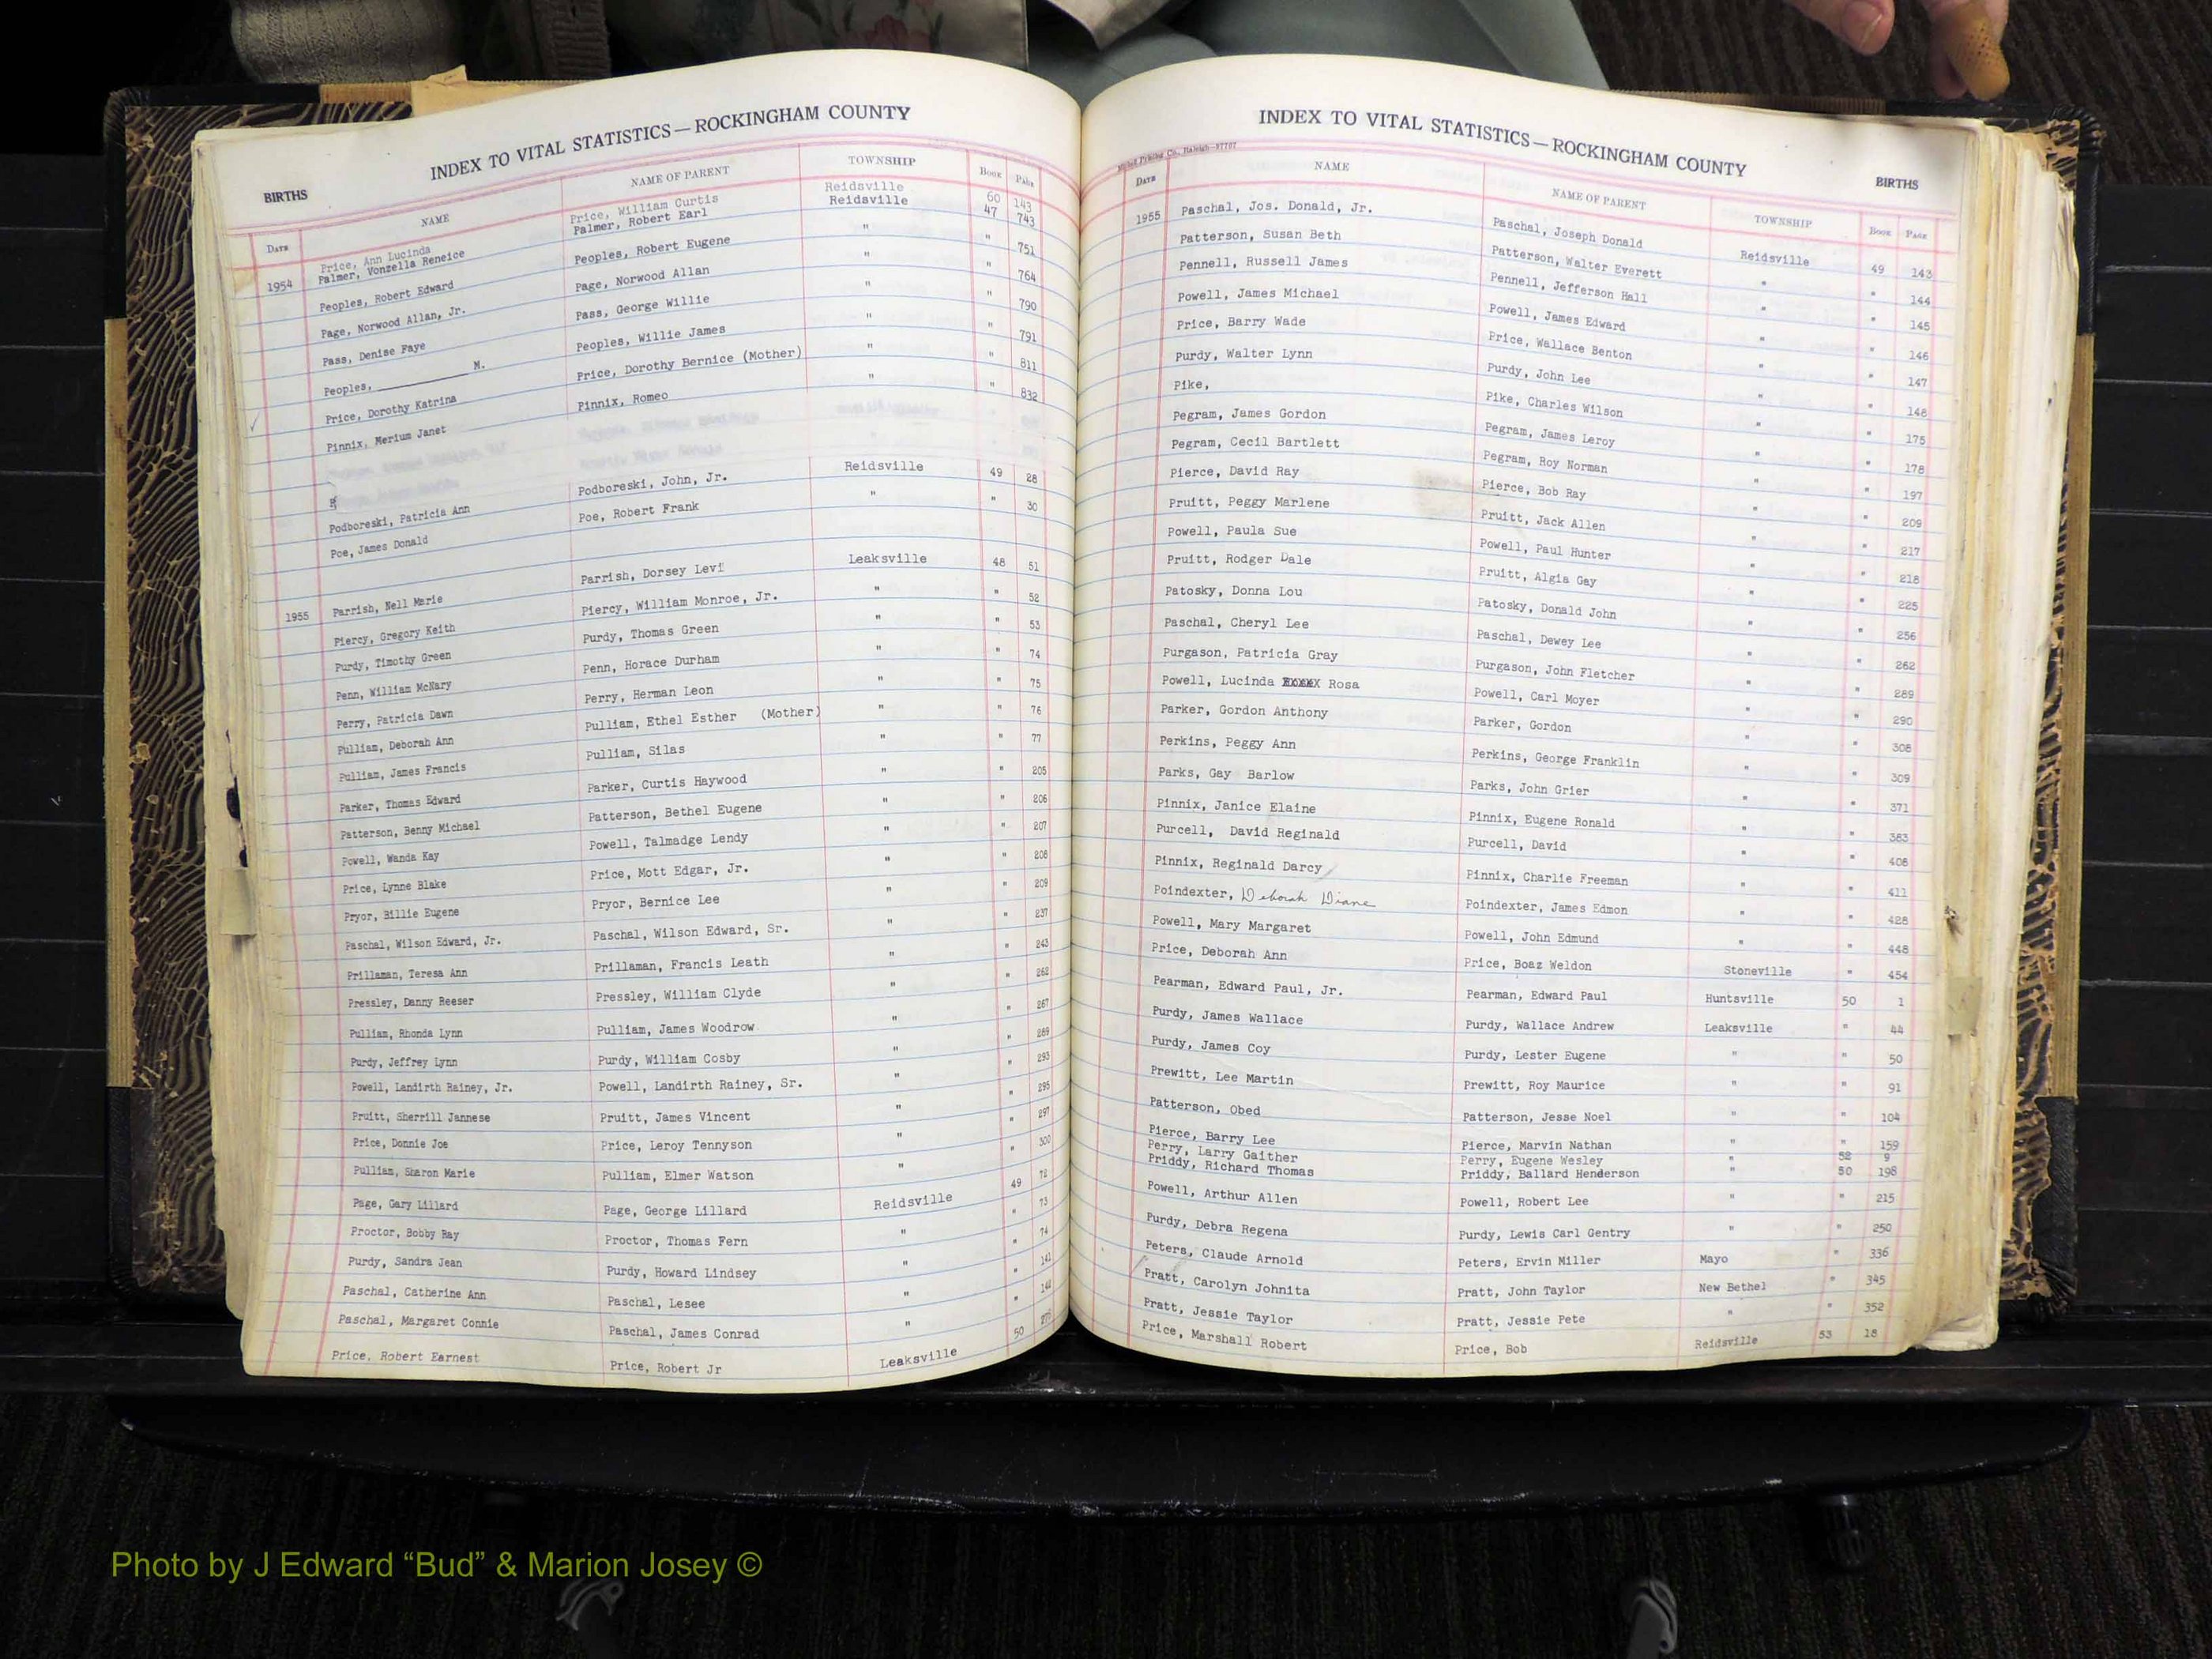 INDEX TO VITAL STATISTICS — ROCKINGHAM COUNTY
BIRTHS
DATE NAME NAME OF PARENT TOWNSHIP BOOK PAGE
Price, Ann Lucinda Price, William Curtis Reidsville 60 143
1954 Palmer, Vonzella Reneice Palmer, Robert Earl Reidsville 47 743
Peoples, Robert Edward Peoples, Robert Eugene " " 751
Page, Norwood Allan, Jr. Page, Norwood Allan " " 764
Pass, Denise Faye Pass, George Willie " " 790
Peoples, __________ M. Peoples, Willie James " " 791
✓ Price, Dorothy Katrina Price, Dorothy Bernice (Mother) " " 811
Pinnix, Merium Janet Pinnix, Romeo " " 832
Podboreski, Patricia Ann Podboreski, John, Jr. Reidsville 49 28
Poe, James Donald Poe, Robert Frank " " 30
1955 Parrish, Nell Marie Parrish, Dorsey Levi Leaksville 48 51
Piercy, Gregory Keith Piercy, William Monroe, Jr. " " 52
Purdy, Timothy Green Purdy, Thomas Green " " 53
Penn, William McNary Penn, Horace Durham " " 74
Perry, Patricia Dawn Perry, Herman Leon " " 75
Pulliam, Deborah Ann Pulliam, Ethel Esther (Mother) " " 76
Pulliam, James Francis Pulliam, Silas " " 77
Parker, Thomas Edward Parker, Curtis Haywood " " 205
Patterson, Benny Michael Patterson, Bethel Eugene " " 206
Powell, Wanda Kay Powell, Talmadge Lendy " " 207
Price, Lynne Blake Price, Mott Edgar, Jr. " " 208
Pryor, Billie Eugene Pryor, Bernice Lee " " 209
Paschal, Wilson Edward, Jr. Paschal, Wilson Edward, Sr. " " 237
Prillaman, Teresa Ann Prillaman, Francis Leath " " 243
Pressley, Danny Reeser Pressley, William Clyde " " 262
Pulliam, Rhonda Lynn Pulliam, James Woodrow " " 267
Purdy, Jeffrey Lynn Purdy, William Cosby " " 289
Powell, Landirth Rainey, Jr. Powell, Landirth Rainey, Sr. " " 293
Pruitt, Sherrill Jannese Pruitt, James Vincent " " 295
Price, Donnie Joe Price, Leroy Tennyson " " 297
Pulliam, Sharon Marie Pulliam, Elmer Watson " " 300
Page, Gary Lillard Page, George Lillard Reidsville 49 72
Proctor, Bobby Ray Proctor, Thomas Fern " " 73
Purdy, Sandra Jean Purdy, Howard Lindsey " " 74
Paschal, Catherine Ann Paschal, Lesee " " 141
Paschal, Margaret Connie Paschal, James Conrad " "
Price, Robert Earnest Price, Robert Jr Leaksville 50
INDEX TO VITAL STATISTICS — ROCKINGHAM COUNTY
Co., Raleigh—97707
BIRTHS
DATE NAME NAME OF PARENT TOWNSHIP BOOK PAGE
1955 Paschal, Jos. Donald, Jr. Paschal, Joseph Donald Reidsville 49 143
Patterson, Susan Beth Patterson, Walter Everett " " 144
Pennell, Russell James Pennell, Jefferson Hall " " 145
Powell, James Michael Powell, James Edward " " 146
Price, Barry Wade Price, Wallace Benton " " 147
Purdy, Walter Lynn Purdy, John Lee " " 148
Pike, Pike, Charles Wilson " " 175
Pegram, James Gordon Pegram, James Leroy " " 178
Pegram, Cecil Bartlett Pegram, Roy Norman " " 197
Pierce, David Ray Pierce, Bob Ray " " 209
Pruitt, Peggy Marlene Pruitt, Jack Allen " " 217
Powell, Paula Sue Powell, Paul Hunter " " 218
Pruitt, Rodger Dale Pruitt, Algia Gay " " 225
Patosky, Donna Lou Patosky, Donald John " " 256
Paschal, Cheryl Lee Paschal, Dewey Lee " " 262
Purgason, Patricia Gray Purgason, John Fletcher " " 289
Powell, Lucinda Rosa Powell, Carl Moyer " " 290
Parker, Gordon Anthony Parker, Gordon " " 308
Perkins, Peggy Ann Perkins, George Franklin " " 309
Parks, Gay Barlow Parks, John Grier " " 371
Pinnix, Janice Elaine Pinnix, Eugene Ronald " " 383
Purcell, David Reginald Purcell, David " " 406
Pinnix, Reginald Darcy Pinnix, Charlie Freeman " " 411
Poindexter, Deborah Diane Poindexter, James Edmon " " 428
Powell, Mary Margaret Powell, John Edmund " " 448
Price, Deborah Ann Price, Boaz Weldon Stoneville " 454
Pearman, Edward Paul, Jr. Pearman, Edward Paul Huntsville 50 1
Purdy, James Wallace Purdy, Wallace Andrew Leaksville " 44
Purdy, James Coy Purdy, Lester Eugene " " 50
Prewitt, Lee Martin Prewitt, Roy Maurice " " 91
Patterson, Obed Patterson, Jesse Noel " " 104
Pierce, Barry Lee Pierce, Marvin Nathan " " 159
Perry, Larry Gaither Perry, Eugene Wesley " 52 9
Priddy, Richard Thomas Priddy, Ballard Henderson " 50 198
Powell, Arthur Allen Powell, Robert Lee " " 215
Purdy, Debra Regena Purdy, Lewis Carl Gentry " " 250
Peters, Claude Arnold Peters, Ervin Miller Mayo " 336
Pratt, Carolyn Johnita Pratt, John Taylor New Bethel " 345
Pratt, Jessie Taylor Pratt, Jessie Pete " " 352
Price, Marshall Robert Price, Bob Reidsville 53 18
Photo by J Edward “Bud” & Marion Josey ©